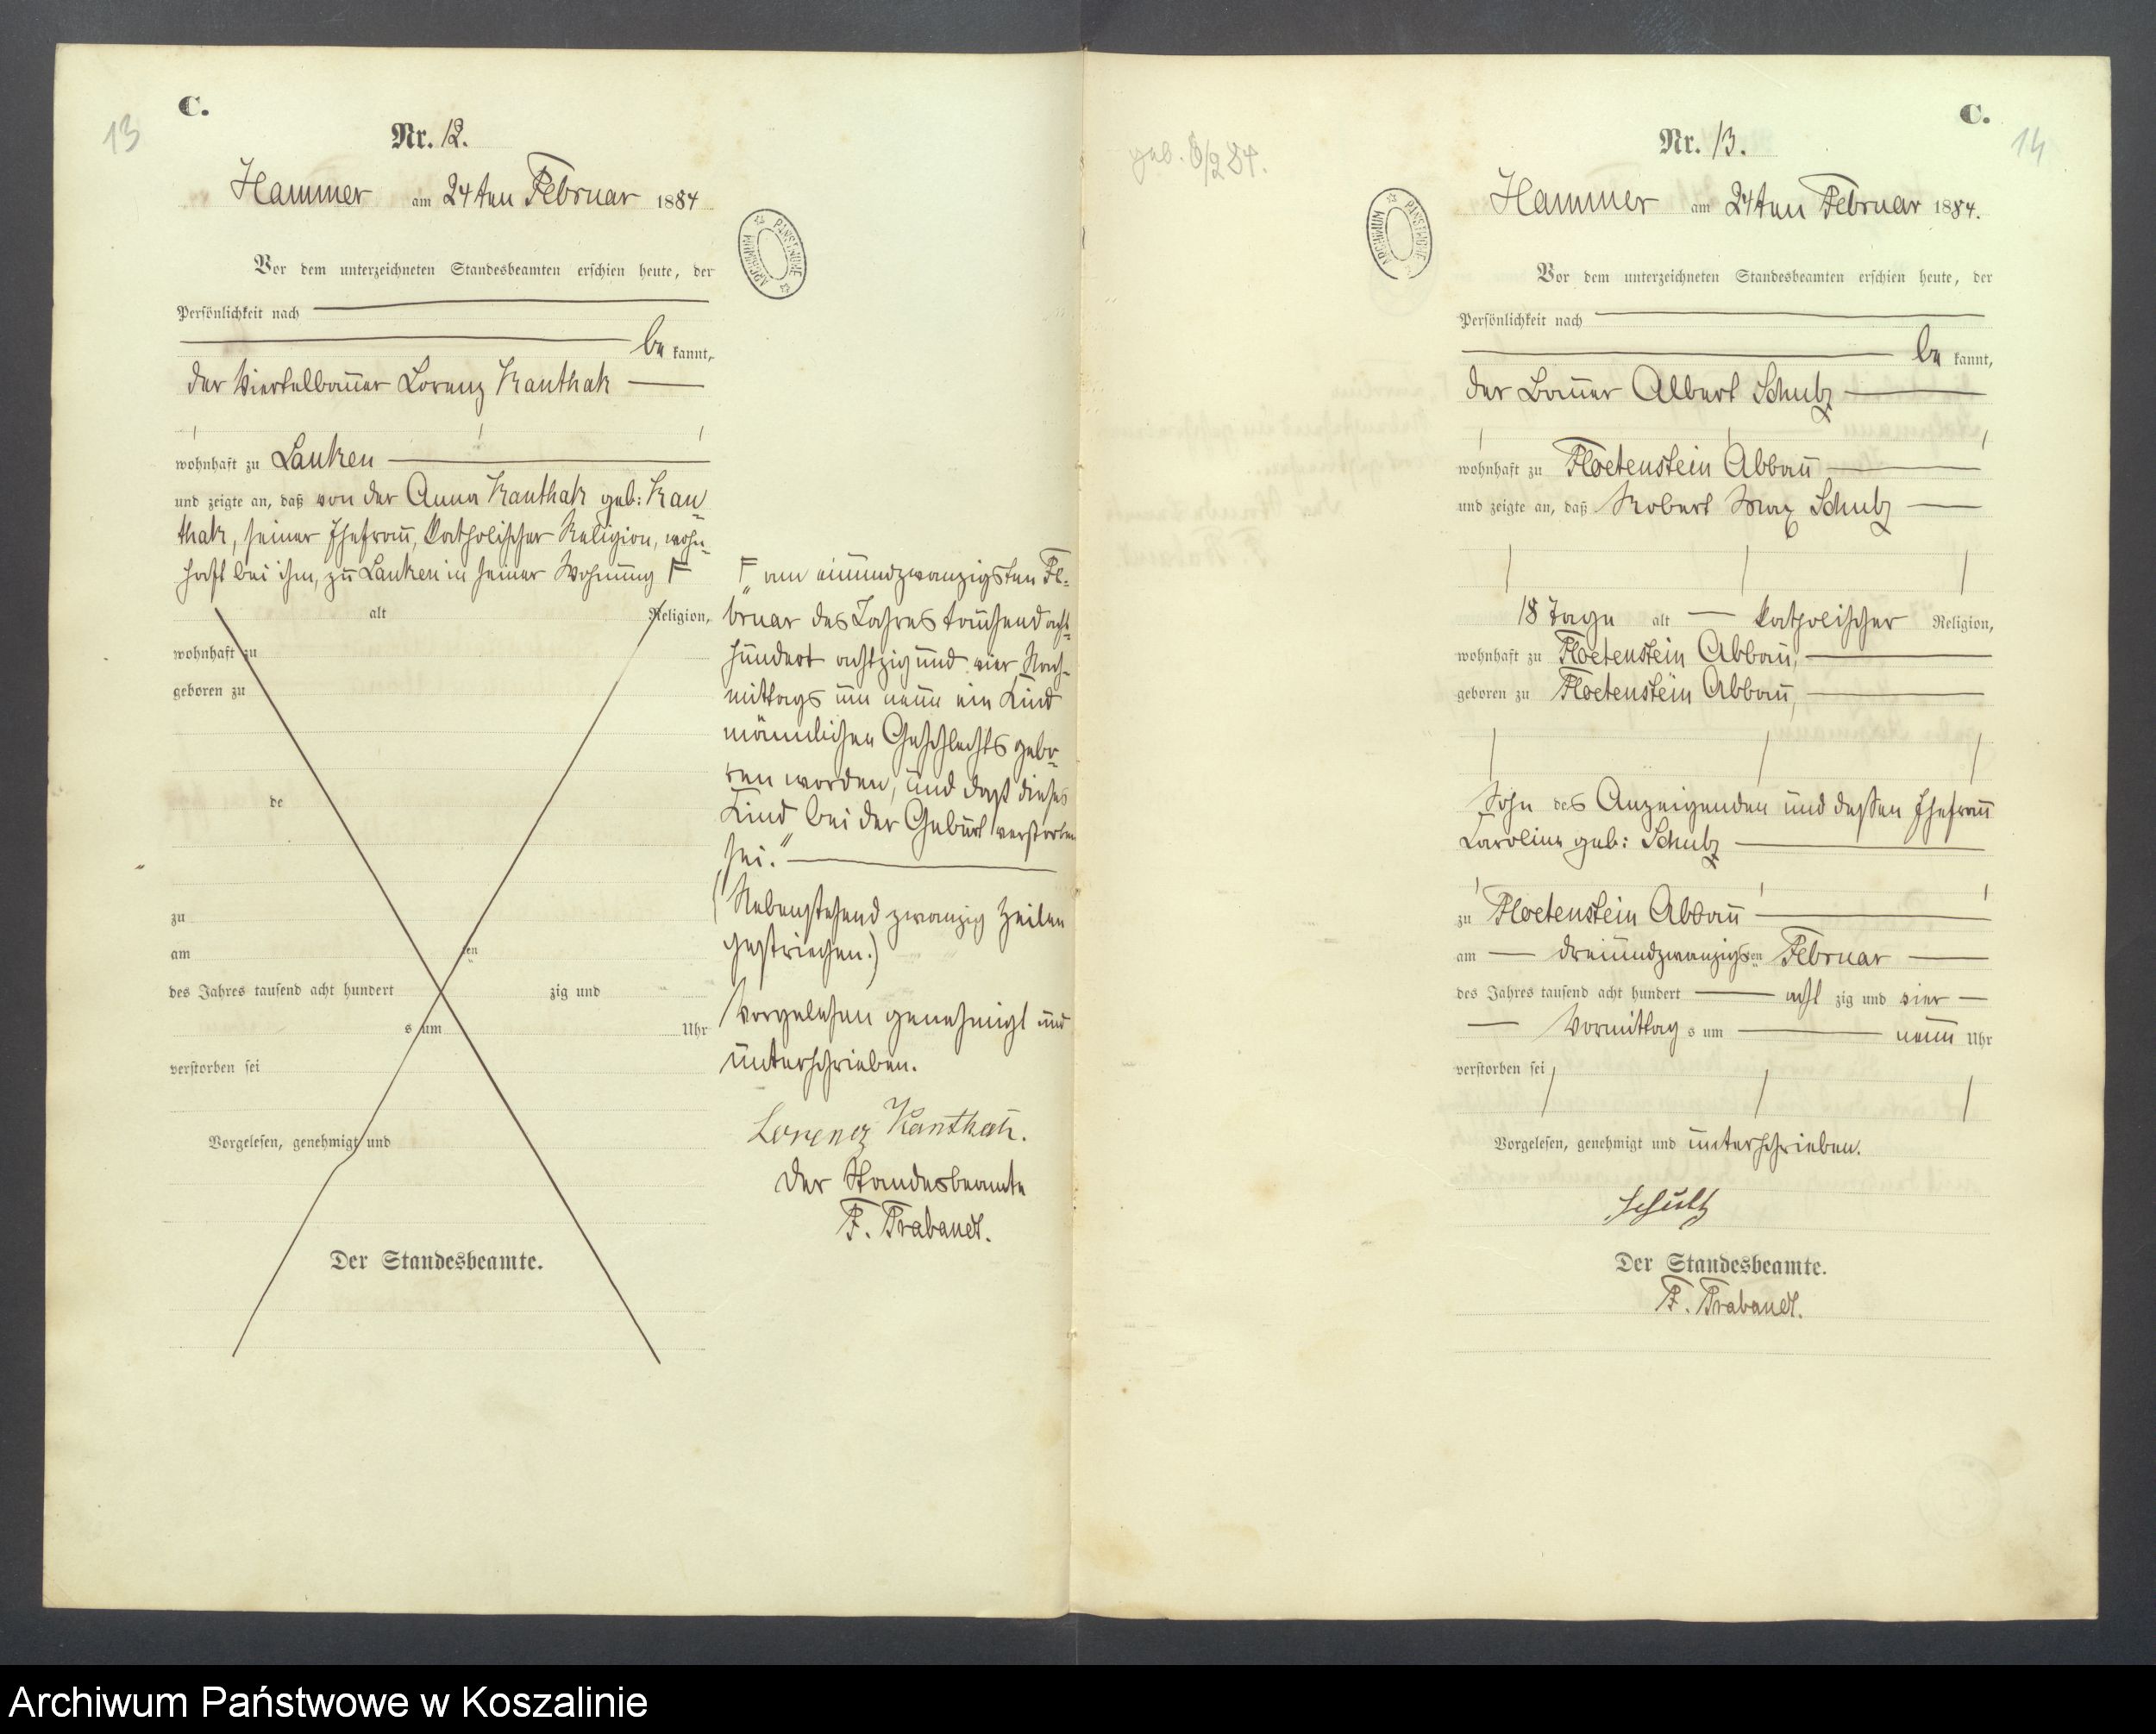 13
C.
Nr. 12.
Hammer am 24ten Februar 1884
Vor dem unterzeichneten Standesbeamten erschien heute, der
Persönlichkeit nach
be kannt,
der Viertelbauer Lorenz Kanthak
wohnhaft zu Lanken
und zeigte an, daß von der Anna Kanthak geb: Kan
thak, seiner Ehefrau, katholischer Religion, wohn
haft bei ihm, zu Lanken in seiner Wohnung F
alt Religion,
wohnhaft zu
geboren zu
de
zu
am ten
des Jahres tausend acht hundert zig und
s um Uhr
verstorben sei
Vorgelesen, genehmigt und
Der Standesbeamte.
ARCHIWUM PAŃSTWOWE
F „am einundzwanzigsten Fe-
bruar des Jahres tausend acht-
hundert achtzig und vier Nach-
mittags um neun ein Kind
männlichen Geschlechts gebo
ren worden, und daß dieses
Kind bei der Geburt verstorben
sei."
(Nebenstehend zwanzig Zeilen
gestrichen.)
Vorgelesen genehmigt und
unterschrieben.
Lorenz Kanthak.
Der Standesbeamte
F. Trabandt.
geb. 6/2 84.
ARCHIWUM PAŃSTWOWE
C.
14
Nr. 13.
Hammer am 24ten Februar 1884.
Vor dem unterzeichneten Standesbeamten erschien heute, der
Persönlichkeit nach
be kannt,
der Bauer Albert Schulz
wohnhaft zu Floetenstein Abbau
und zeigte an, daß Robert Max Schulz
18 Tage alt katholischer Religion,
wohnhaft zu Floetenstein Abbau,
geboren zu Floetenstein Abbau,
Sohn des Anzeigenden und dessen Ehefrau
Caroline geb: Schulz
zu Floetenstein Abbau
am dreiundzwanzigsten Februar
des Jahres tausend acht hundert acht zig und vier
Vormittag s um neun Uhr
verstorben sei
Vorgelesen, genehmigt und unterschrieben.
Schultz
Der Standesbeamte.
F. Trabandt.
Archiwum Państwowe w Koszalinie